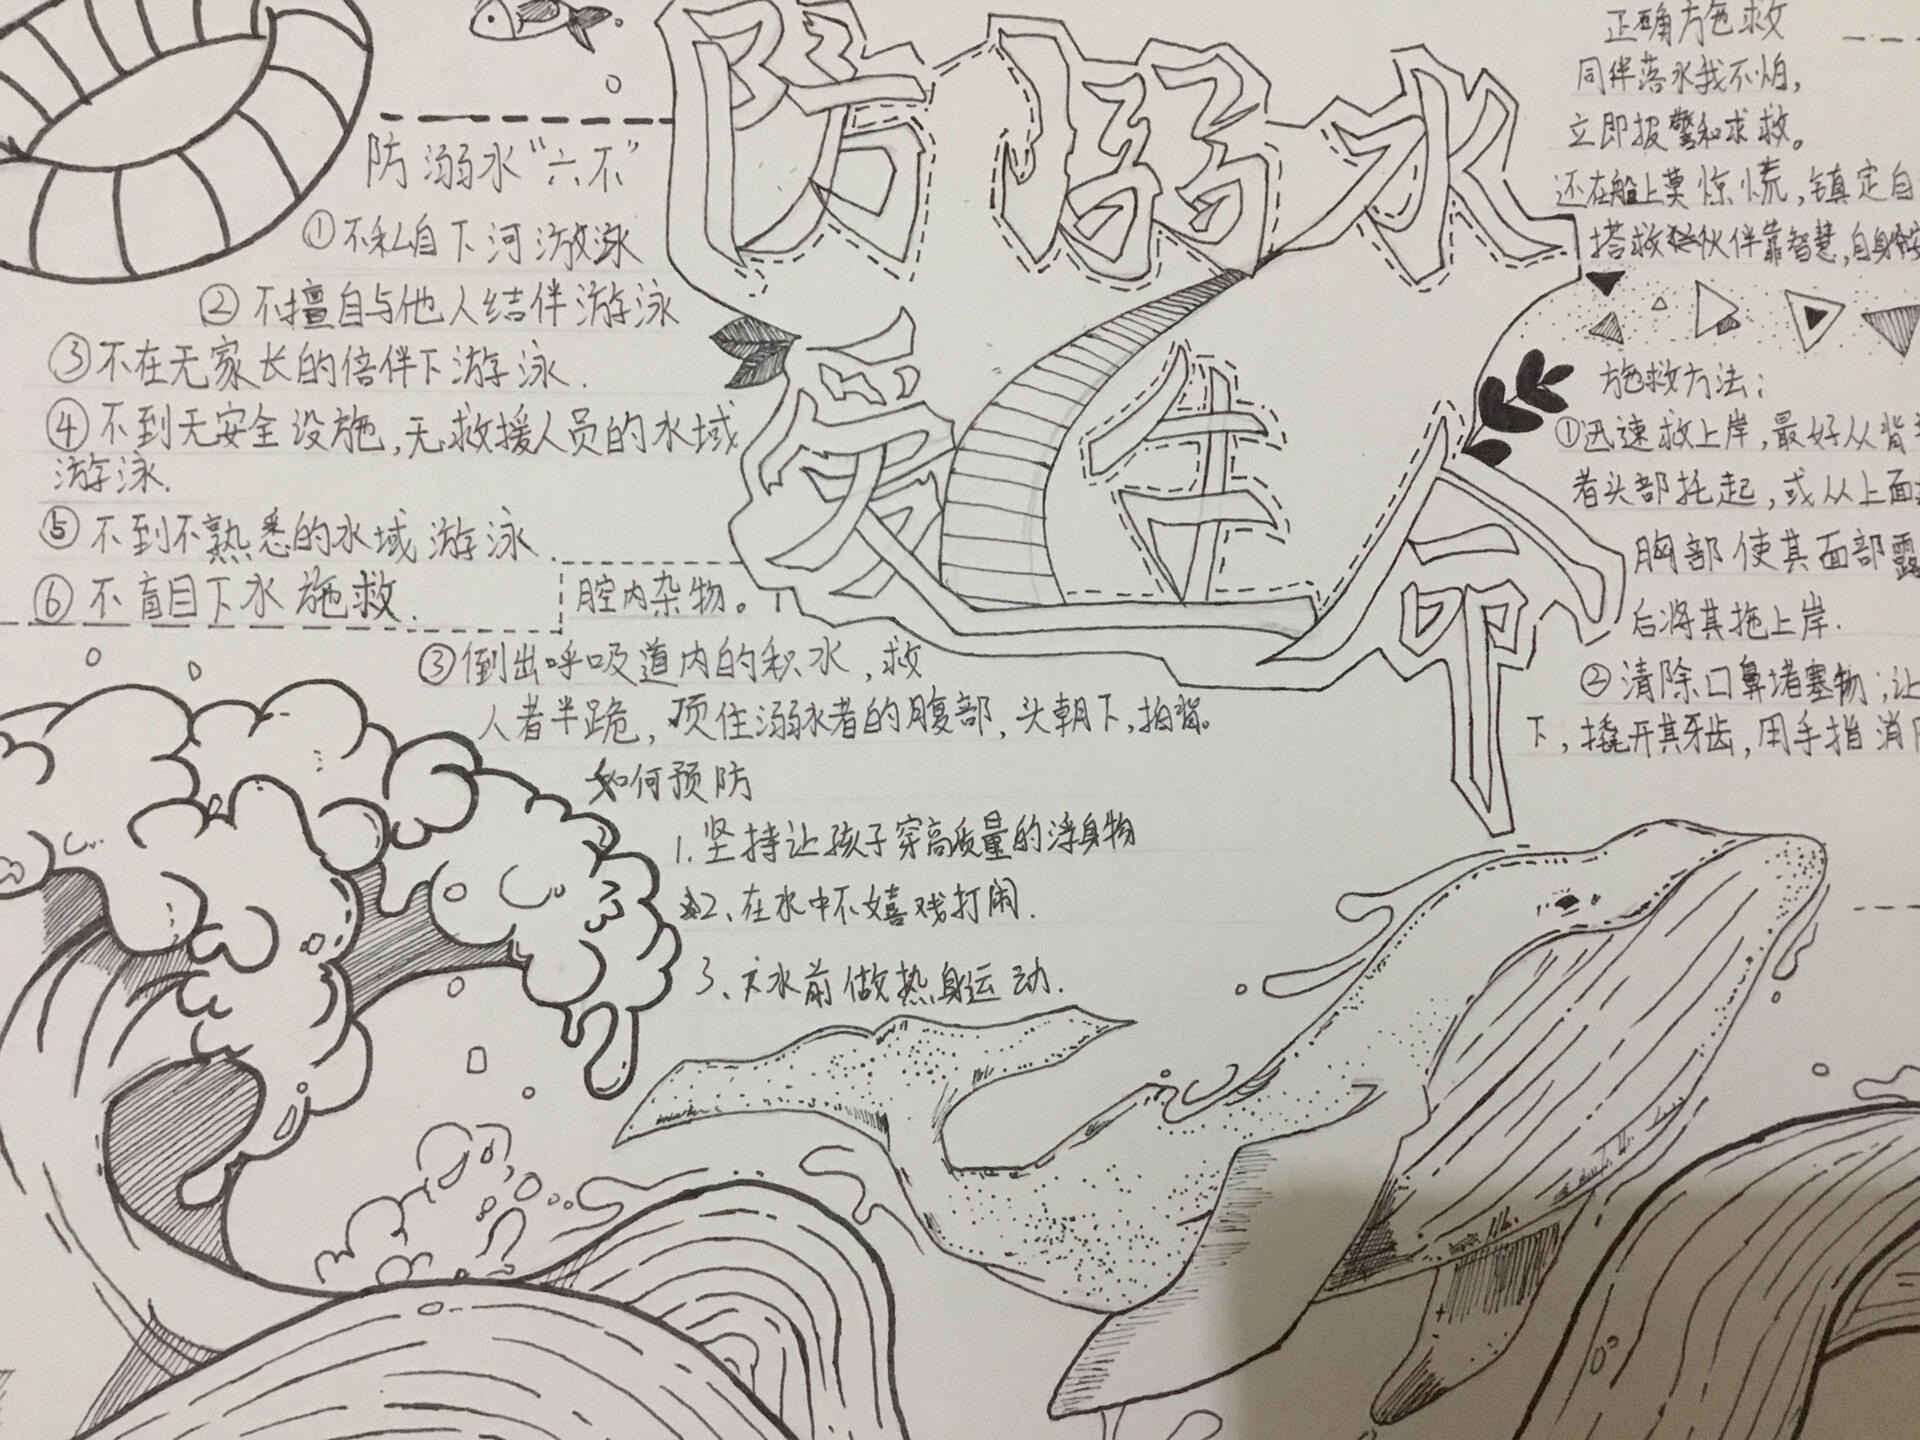 防溺水
爱生命
防溺水“六不”
①不私自下河游泳
②不擅自与他人结伴游泳
③不在无家长的倍伴下游泳.
④不到无安全设施,无救援人员的水域
游泳.
⑤不到不熟悉的水域游泳.
⑥不盲目下水施救.
正确方施救
同伴落水我不怕,
立即报警和求救。
还在船上莫惊慌,镇定自
搭救伙伴靠智慧,自身
施救方法:
①迅速救上岸,最好从背
者头部托起,或从上面
胸部使其面部露
后将其拖上岸.
②清除口鼻堵塞物;让
下,撬开其牙齿,用手指消
腔内杂物。
③倒出呼吸道内的积水,救
人者半跪,顶住溺水者的腹部,头朝下,拍背。
如何预防
1.坚持让孩子穿高质量的浮身物
2、在水中不嬉戏打闹.
3、下水前做热身运动.